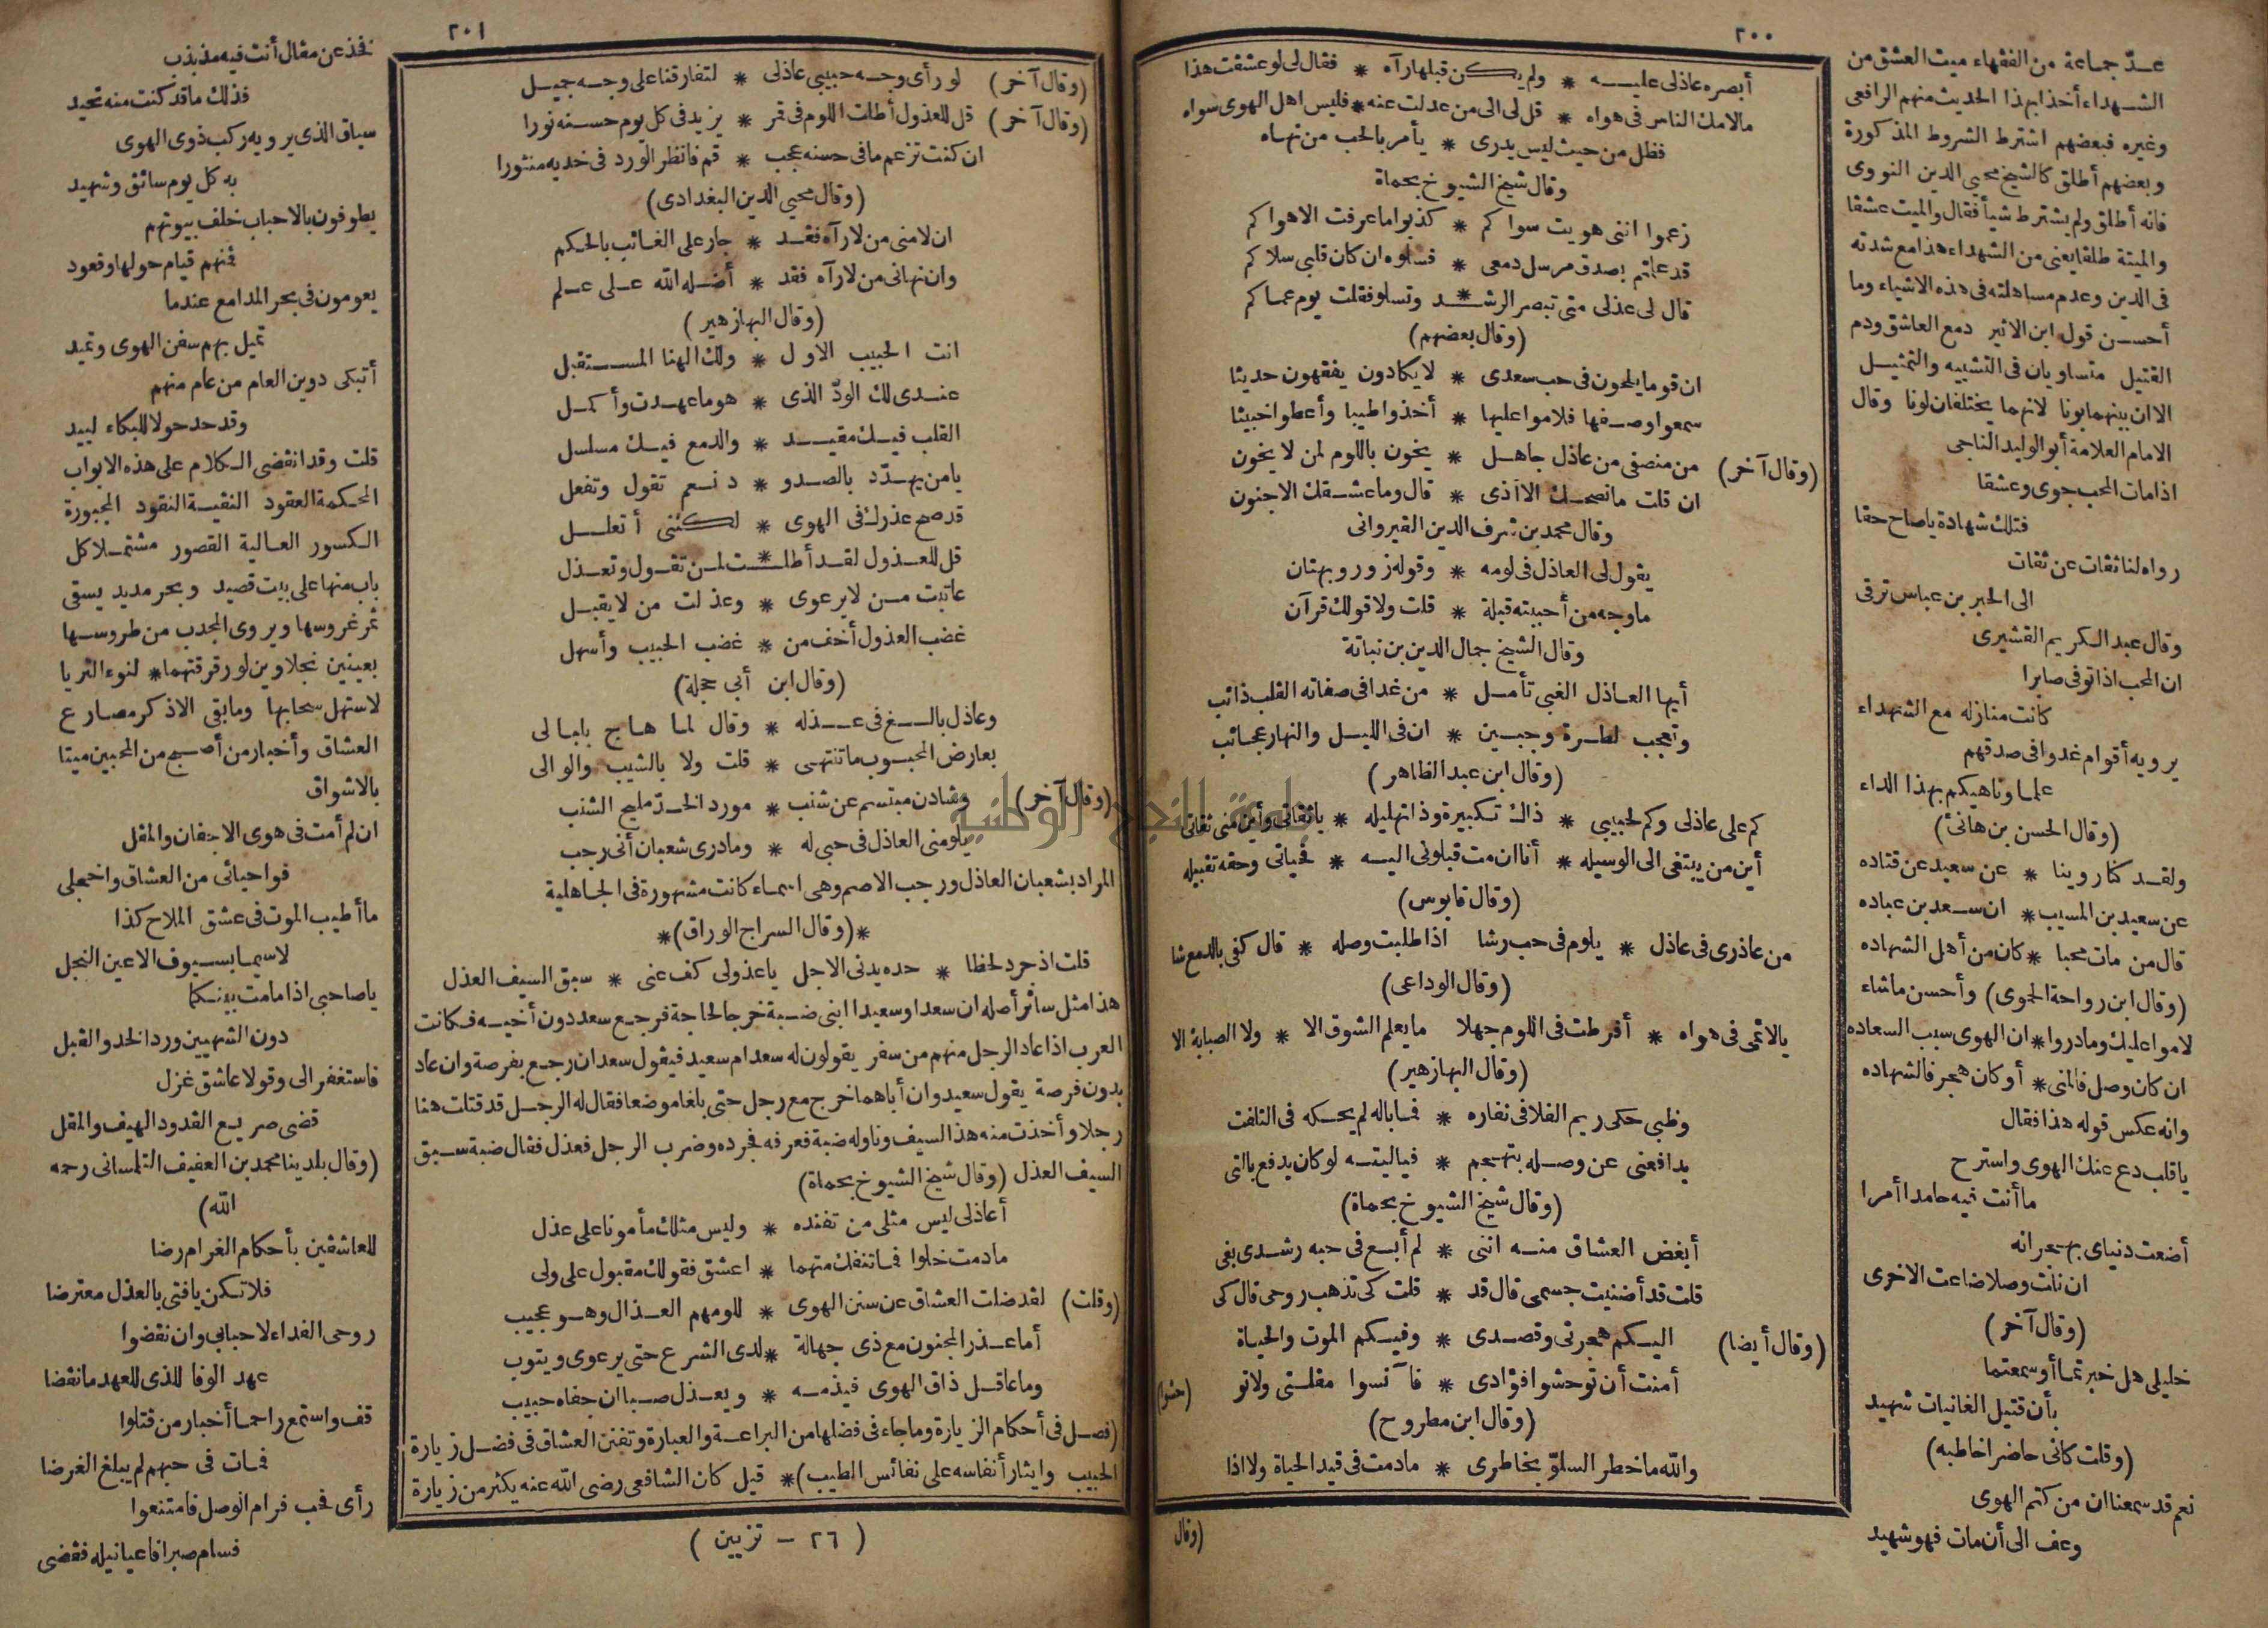 ٢٠٠
أبصره عاذلى عليه * ولم يكن قبلها رآه * فقال لى لو عشقت هذا
مالامك الناس فى هواه * قل لى الى من عدلت عنه * فليس اهل الهوى سواه
فظل من حيث ليس يدرى * يأمر بالحب من نهاه
وقال شيخ الشيوخ بحماة
زعموا اننى هويت سواكم * كذبوا ما عرفت الا هواكم
قد علمتم بصدق مرسل دمعى * فسلوه ان كان قلبى سلاكم
قال لى عذلى متى تبصر الرشد * وتسلو فقلت يوم عماكم
(وقال بعضهم)
ان قوما يلحون فى حب سعدى * لا يكادون يفقهون حديثا
سمعوا وصفها فلاموا عليها * أخذوا طيبا وأعطوا خبيثا
(وقال آخر) من منصفى من عاذل جاهل * يخون باللوم لمن لا يخون
ان قلت ما نصحك الا أذى * قال وما عشقك الا جنون
وقال محمد بن شرف الدين القيروانى
يقول لى العاذل فى لومه * وقوله زور وبهتان
ما وجه من أحببته قبلة * قلت ولا قولك قرآن
وقال الشيخ جمال الدين بن نباتة
أيها العاذل الغبى تأمل * من غدا فى صفاته القلب ذائب
وتعجب لطرة وجبين * ان فى الليل والنهار عجائب
(وقال ابن عبد الظاهر)
كم على عاذلى وكم لحبيبى * ذاك تكبيرة وذا تهليله * يا ثقاتى وأين منى ثقاتى
أين من يبتغى الى الوسيله * أنا ان مت قبلونى اليه * فحياتى وحقه تقبيله
(وقال قابوس)
من عاذرى فى عاذل * يلوم فى حب رشا اذا طلبت وصله * قال كفى بالدمع شا
(وقال الوداعى)
يالائمى فى هواه * أفرطت فى اللوم جهلا ما يعلم الشوق الا * ولا الصبابة الا
(وقال البهاز هير)
وظبى حكى ريم الفلا فى نفاره * فما باله لم يحكه فى التلفت
يدافعنى عن وصله بتهجم * فياليته لو كان يدفع بالتى
(وقال شيخ الشيوخ بحماة)
أبغض العشاق منه اننى * لم أبع فى حبه رشدى بغى
قلت قد أضنيت جسمى قال قد * قلت كى تذهب روحى قال كى
(وقال أيضا) اليكم هجرتى وقصدى * وفيكم الموت والحياة
أمنت أن توحشوا فؤادى * فآنسوا مقلتى ولاتو (حشوا)
(وقال ابن مطروح)
والله ما خطر السلو بخاطرى * مادمت فى قيد الحياة ولا اذا
(وقال
عد جماعة من الفقهاء ميت العشق من
الشهداء أخذا بهذا الحديث منهم الرافعى
وغيره فبعضهم اشترط الشروط المذكورة
وبعضهم أطلق كالشيخ محيى الدين النووى
فانه أطلق ولم يشترط شيأ فقال والميت عشقا
والميتة طلقا يعنى من الشهداء هذا مع شدته
فى الدين وعدم مساهلته فى هذه الاشياء وما
أحسن قول ابن الاثير دمع العاشق ودم
القتيل متساويان فى التشبيه والتمثيل
الا ان بينهما بونا لانهما يختلفان لونا وقال
الامام العلامة أبو الوليد الناجى
اذا مات المحب جوى وعشقا
فتلك شهادة يا صاح حقا
رواه لنا ثقات عن ثقات
الى الحبر بن عباس ترقى
وقال عبد الكريم القشيرى
ان المحب اذا توفى صابرا
كانت منازله مع الشهداء
يرويه أقوام غدوا فى صدقهم
علما وناهيكم بهذا الداء
(وقال الحسن بن هانئ)
ولقد كنا روينا * عن سعيد عن قتاده
عن سعيد بن المسيب * ان سعد بن عباده
قال من مات محبا * كان من أهل الشهاده
(وقال ابن رواحة الحموى) وأحسن ماشاء
لاموا عليك ومادروا * ان الهوى سبب السعاده
ان كان وصل فالمنى * أو كان هجر فالشهاده
وانه عكس قوله هذا فقال
يا قلب دع عنك الهوى واسترح
ما أنت فيه حامدا أمرا
أضعت دنياى بهجرانه
ان نلت وصلا ضاعت الاخرى
(وقال آخر)
خليلى هل خبرتما أو سمعتما
بأن قتيل الغانيات شهيد
(وقلت كانى حاضر اخاطبه)
نعم قد سمعنا ان من كتم الهوى
وعف الى أن مات فهو شهيد
٢٠١
(وقال آخر) لو رأى وجه حبيبى عاذلى * لتفارقنا على وجه جميل
(وقال آخر) قل للعذول أطلت اللوم فى قمر * يزيد فى كل يوم حسنه نورا
ان كنت تزعم ما فى حسنه عجب * قم فانظر الورد فى خديه منثورا
(وقال محيى الدين البغدادى)
ان لامنى من لا رآه فقد * جار على الغائب بالحكم
وان نهانى من لا رآه فقد * أضله الله على علم
(وقال البهاز هير)
انت الحبيب الاول * ولك الهنا المستقبل
عندى لك الود الذى * هو ما عهدت وأكمل
القلب فيك مقيد * والدمع فيك مسلسل
يامن يهدد بالصدو * د نعم تقول وتفعل
قد صح عذرك فى الهوى * لكننى أتعلل
قل للعذول لقد أطلت * لمن تقول وتعذل
عاتبت من لا يرعوى * وعذلت من لا يقبل
غضب العذول أخف من * غضب الحبيب وأسهل
(وقال ابن أبي حجلة)
وعاذل بالغ فى عذله * وقال لما هاج بلبالى
بعارض المحبوب ما تنتهى * قلت ولا بالشيب والوالى
(وقال آخر) وشادن مبتسم عن شنب * مورد الخد مليح الشنب
يلومنى العاذل فى حبى له * ومادرى شعبان أنى رجب
المراد بشعبان العاذل ورجب الاصم وهى اسماء كانت مشهورة فى الجاهلية
*(وقال السراج الوراق)*
قلت اذ جرد لحظا * حده يدنى الاجل يا عذولى كف عنى * سبق السيف العذل
هذا مثل سائر أصله ان سعدا وسعيدا ابنى ضبة خرجا لحاجة فرجع سعد دون أخيه فكانت
العرب اذا عاد الرجل منهم من سفر يقولون له سعد ام سعيد فيقول سعد ان رجع بفرصة وان عاد
بدون فرصة يقول سعيد وان أباهما خرج مع رجل حتى بلغا موضعا فقال له الرجل قد قتلت هنا
رجلا وأخذت منه هذا السيف وناوله ضبة فعرفه فجرده وضرب الرجل فعذل فقال ضبة سبق
السيف العذل (وقال شيخ الشيوخ بحماة)
أعاذلى ليس مثلى من تفنده * وليس مثلك مأمونا على عذل
مادمت خلوا فما تنفك متهما * اعشق فقولك مقبول على ولى
(وقلت) لقد ضلت العشاق عن سنن الهوى * للومهم العذال وهو عجيب
أما عذر المجنون مع ذى جهالة * لدى الشرع حتى يرعوى ويتوب
وما عاقل ذاق الهوى فيذمه * ويعذل صبا ان جفاه حبيب
(فصل فى أحكام الزيارة وما جاء فى فضلها من البراعة والعبارة وتفنن العشاق فى فضل زيارة
الحبيب وايثار أنفاسه على نفائس الطيب)* قيل كان الشافعى رضى الله عنه يكثر من زيارة
( ٢٦ - تزيين )
فخذ عن مقال أنت فيه مذبذب
فذلك ما قد كنت منه تحيد
سياق الذى يرويه ركب ذوى الهوى
به كل يوم سائق وشهيد
يطوفون بالاحباب خلف بيوتهم
فمنهم قيام حولها وقعود
يعومون فى بحر المدامع عندما
تميل بهم سفن الهوى وتميد
أتبكى دوين العام من عام منهم
وقد حد حولا للبكاء لبيد
قلت وقد انقضى الكلام على هذه الابواب
المحكمة العقود النقية النقود المجبورة
الكسور العالية القصور مشتملا كل
باب منها على بيت قصيد وبحر مديد يسقى
ثمر غروسها ويروى المجدب من طروسها
بعينين نجلاوين لو رقرقتهما * لنوء الثريا
لاستهل سحابها ومابقى الا ذكر مصارع
العشاق وأخبار من أصبح من المحبين ميتا
بالاشواق
ان لم أمت فى هوى الاجفان والمقل
فواحيائى من العشاق واخجلى
ما أطيب الموت فى عشق الملاح كذا
لاسيما بسيوف الاعين النجل
يا صاحبى اذا مامت بينكما
دون الشهيين ورد الخد والقبل
فاستغفرا لى وقولا عاشق غزل
قضى صريع القدود الهيف والمقل
(وقال بلدينا محمد بن العفيف التلمسانى رحمه
الله)
للعاشقين بأحكام الغرام رضا
فلا تكن يا فتى بالعذل معترضا
روحى الفداء لاحبابى وان نقضوا
عهد الوفا للذى للعهد ما نقضا
قف واستمع راحما أخبار من قتلوا
فمات فى حبهم لم يبلغ الغرضا
رأى فحب فرام الوصل فامتنعوا
فسام صبرا فاعيا نيله فقضى
جامعة النجاح الوطنية